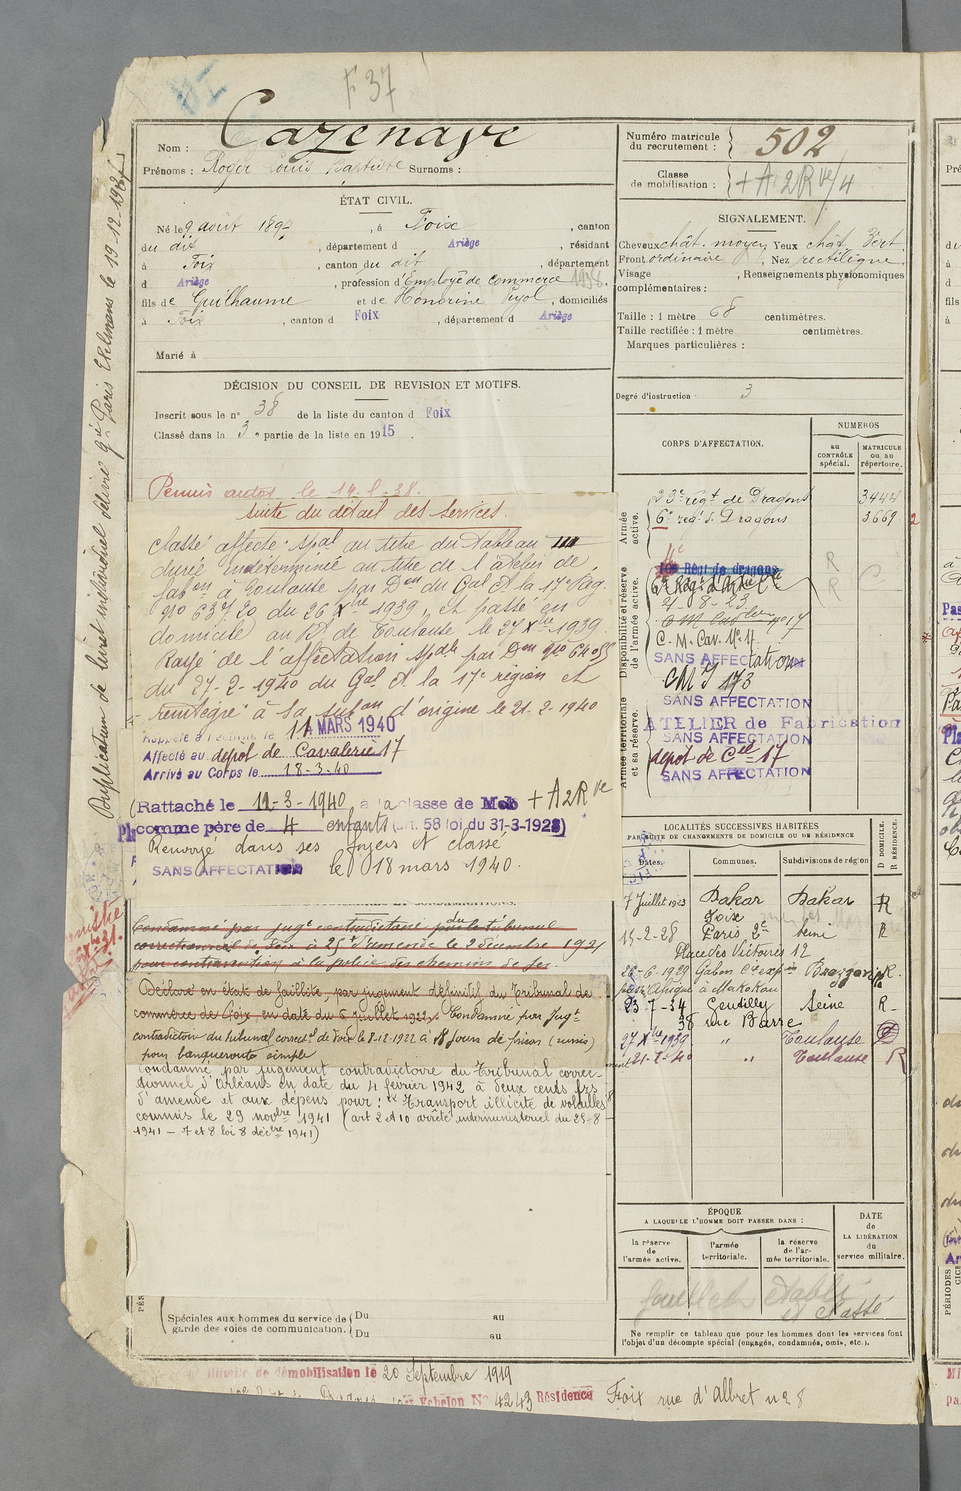 F 37
Cazenave
Nom :
Prénoms : Roger Louis Baptiste Surnoms :
ÉTAT CIVIL.
Né le 9 août 189 , à Foix , canton
du dit , département d Ariège , résidant
à Foix , canton du dit , département
d Ariège , profession d'Employé de Commerce 1938.
fils de Guilhaume et de Honorine Pujol , domiciliés
à Foix , canton d Foix , département d Ariège
Marié à
DÉCISION DU CONSEIL DE REVISION ET MOTIFS.
Inscrit sous le n° 38 de la liste du canton d Foix
Classé dans la 3e partie de la liste en 1915 .
suite du détail des services.
Classé affecté spal au titre du tableau III
durée indéterminée au titre de l'atelier de
fabon à Toulouse par Don du Gal Ct la 17e Rég.
du 26 Xbre 1939, et passé en
domicile au de Toulouse le 27 Xbre 1939.
Rayé de l'affectation spale par Don
du 27-2-1940 du Gal Ct la 17e région et
réintégré à sa subon d'origine le 21-2-1940
11 MARS 1940
Affecté au dépôt de Cavalerie 17
Arrivé au Corps le 18-3-40
Rattaché le 12-3-1940 à la classe de Mob + A 2 R ve
comme père de 4 enfants (art. 58 loi du 31-3-1928)
Renvoyé dans ses foyers et classé
SANS AFFECTATION le 18 mars 1940.
Condamné par jugt contradictoire du tribunal
correctionnel de Foix à 25f d'amende le 2 décembre 1921
pour contravention à la police des chemins de fer.
Déclaré en état de faillite, par jugement définitif du Tribunal de
commerce de Foix, en date du 5 juillet 1922. Condamné par Jugt
contradictoire du tribunal correctel de Foix le 8-12-1922 à 18 jours de prison (sursis)
pour banqueroute simple
Condamné par jugement contradictoire du Tribunal correc-
tionnel d'Orléans en date du 4 février 1942 à deux cents frs
d'amende et aux dépens pour : "Transport illicite de volailles"
commis le 29 novbre 1941 (art 2 et 10 arrêté interministériel du 25-8-
1941 - 7 et 8 loi 8 décbre 1941)
Spéciales aux hommes du service de garde des voies de communication. Du au
Du au
de démobilisation le 20 Septembre 1919
Echelon No 4243 Résidence Foix rue d'Albret n° 8
Duplicatum de livret individuel délivré Paris le 19-12-192
Numéro matricule du recrutement : 502
Classe de mobilisation : + A 2 R ve/4
SIGNALEMENT.
Cheveux chât. moyen Yeux chât. vert.
Front ordinaire Nez rectiligne
Visage , Renseignements physionomiques
complémentaires :
Taille : 1 mètre 68 centimètres.
Taille rectifiée : 1 mètre centimètres.
Marques particulières :
Degré d'instruction 3
CORPS D'AFFECTATION.
NUMÉROS
au CONTRÔLE spécial.
MATRICULE ou au répertoire.
Armée active.
23e régt de Dragons 3444
6e régt de Dragons 3669
Disponibilité et réserve de l'armée active.
Régt de dragons
21-8-23
C. M. Cav. N° 4
SANS AFFECTATION
CMI 173
SANS AFFECTATION
Armée territoriale et sa réserve.
ATELIER de Fabrication
SANS AFFECTATION
dépôt de Cie 17
SANS AFFECTATION
LOCALITÉS SUCCESSIVES HABITÉES
PAR SUITE DE CHANGEMENTS DE DOMICILE OU DE RÉSIDENCE
Dates. Communes. Subdivisions de région D DOMICILE. R RÉSIDENCE.
7 Juillet 1923 Dakar Dakar R
Foix
15-2-28 Paris 2e Seine R
Place des Victoires 12
26-6-1929 Gabon R.
à Makokou
23-7-34 Gentilly Seine R
38 rue Barre
27 Xbre 1939 " Toulouse D
21-2-40 " Toulouse R
ÉPOQUE
A LAQUELLE L'HOMME DOIT PASSER DANS :
la réserve de l'armée active.
l'armée territoriale.
la réserve de l'armée territoriale.
DATE de LA LIBÉRATION du service militaire.
feuillet établi
et classé
Ne remplir ce tableau que pour les hommes dont les services font
l'objet d'un décompte spécial (engagés, condamnés, omis, etc.).